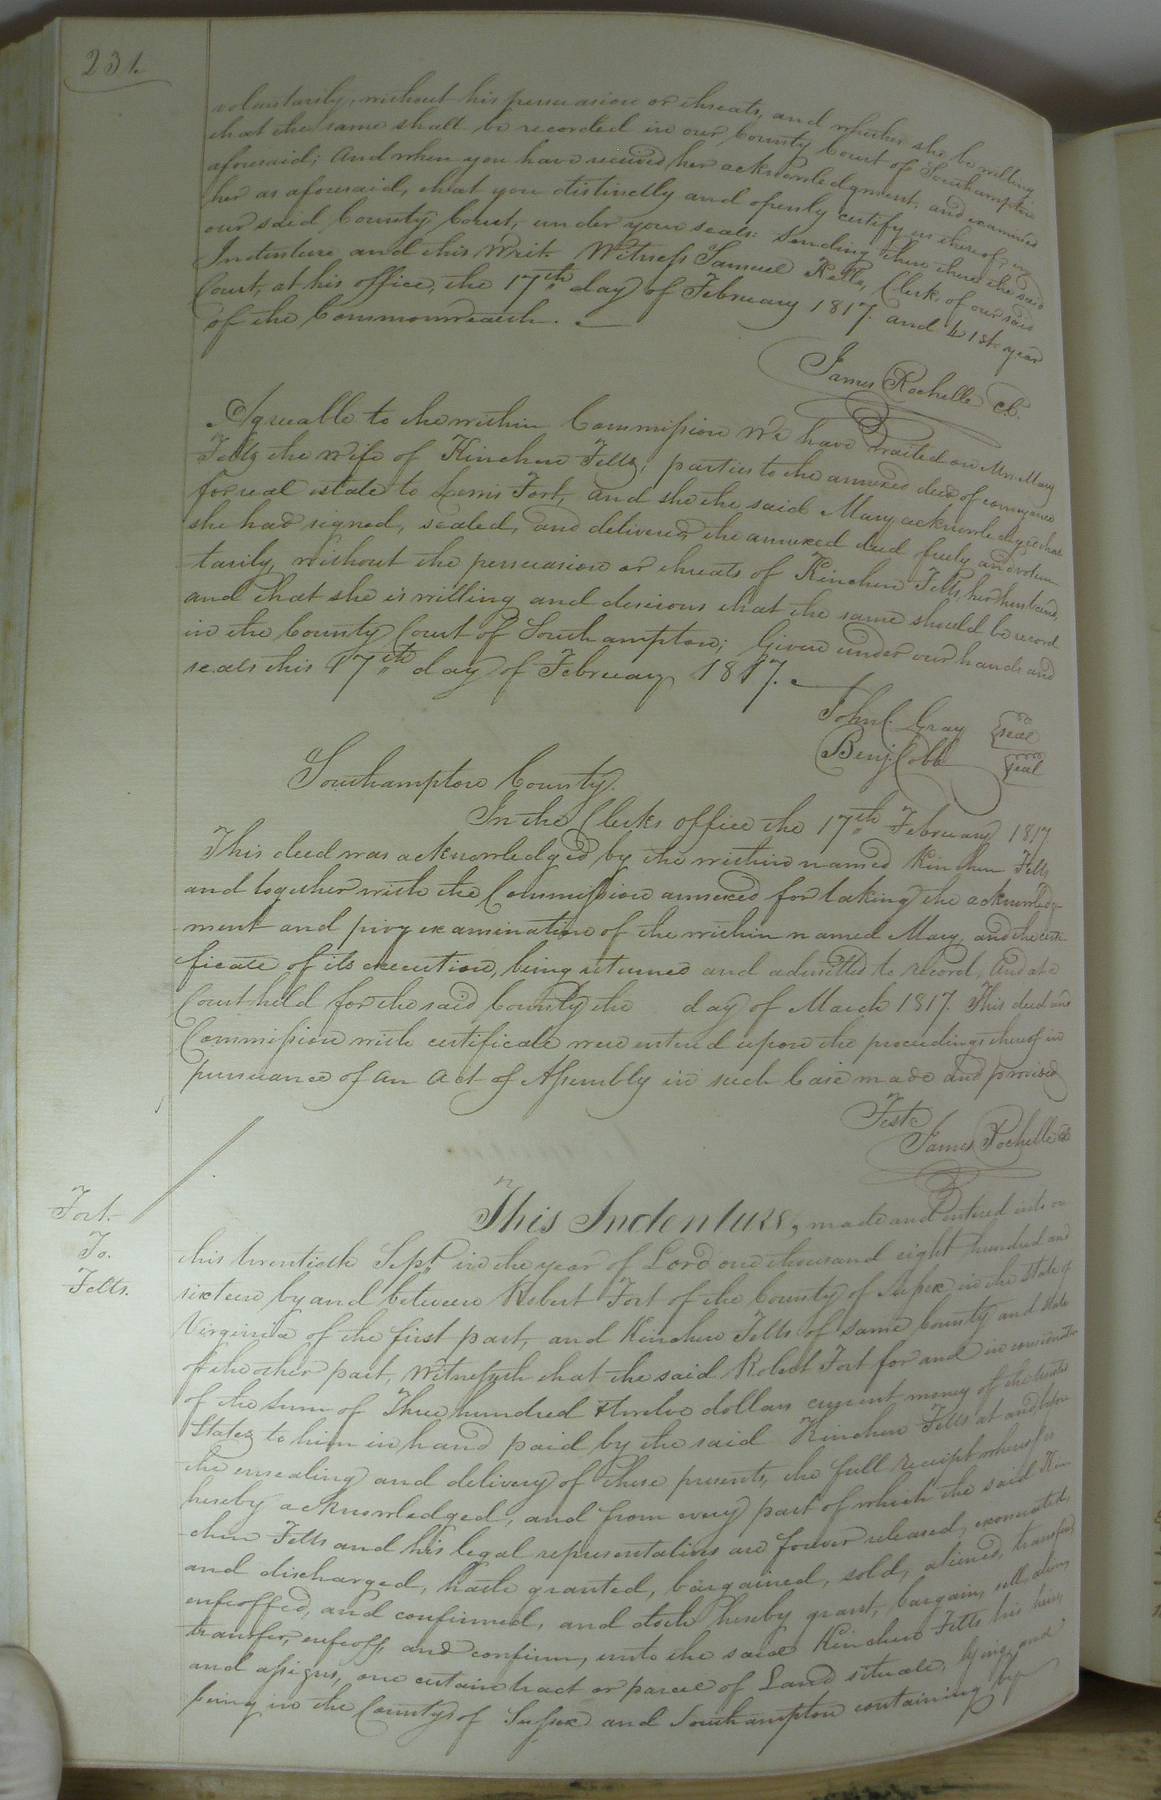 231.
voluntarily, without his persuasion or threats, and whether she be willing
that the same shall be recorded in our County Court of Southampton
aforesaid; And when you have received her acknowledgment, and examined
her as aforesaid, that you distinctly and openly certify us thereof, in
our said County Court, under your seals: sending then there the said
Indenture and this Writ. Witness Samuel Kello, Clerk of our said
Court, at his office, the 17th day of February 1817. and 41st year
of the Commonwealth.
James Rochelle Ck.
Agreeable to the within Commission We have waited on Mrs Mary
Felts the wife of Kinchen Felts; parties to the annexed deed of conveyance
for real estate to Lewis Fort, and she the said Mary acknowledged that
she had signed, sealed, and delivered the annexed deed freely and volun
tarily, without the persuasion or threats of Kinchen Felts, her husband,
and that she is willing and desirous that the same should be record
in the County Court of Southampton; Given under our hands and
seals this 17th day of February 1817.
John C. Gray seal
Benj. Cobb seal
Southampton County.
In the Clerks office the 17th February 1817
This deed was acknowledged by the within named Kinchen Felts
and together with the Commission annexed for taking the acknowledg-
ment and privy examination of the within named Mary, and the certi-
ficate of its execution, being returned and admitted to record, And at a
Court held for the said County the day of March 1817. This deed and
Commission with certificate were enterd upon the proceedings thereof in
pursuance of an Act of Assembly in such Case made and provided
Teste
James Rochelle Ck
Fort
To.
Felts.
This Indenture, made and entered into on
this twentieth Sept. in the year of Lord one thousand eight hundred and
sixteen by and between Robert Fort of the County of Sussex in the State of
Virginia of the first part, and Kinchen Felts of same County and State
of the other part, Witnesseth that the said Robert Fort for and in consideration
of the sum of Three hundred & twelve dollars current money of the United
States to him in hand paid by the said Kinchen Felts at and before
the ensealing and delivery of these presents, the full receipt whereof is
hereby acknowledged, and from every part of which the said Kin
chen Felts and his legal representatives are forever released, exonerated,
and discharged, hath granted, bargained, sold, aliened, transferd,
enfeoffed, and confirmed, and doth hereby grant, bargain, sell, alien,
transfer, enfeoff, and confirm, unto the said Kinchen Felts his heirs,
and assigns, one certain tract or parcel of Land situate, lying, and
being in the Countys of Sussex and Southampton containing by